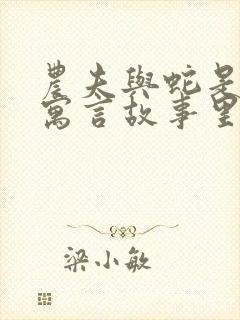 農夫與蛇是
寓言故事里
梁小敏